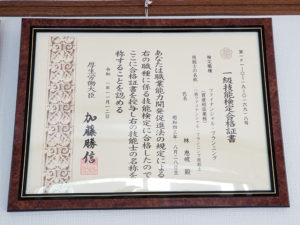 一級技能検定合格証書
検定職種
ファイナンシャル・プランニング
(資産相談業務)
技能士の名称
氏名
林 恵破 殿
あなたは職業能力開発促進法の規定による
右の職種に係る技能検定に合格したので
ここに合格証書を授与し右の技能士の名称を
称することを認める
厚生労働大臣
加藤勝信